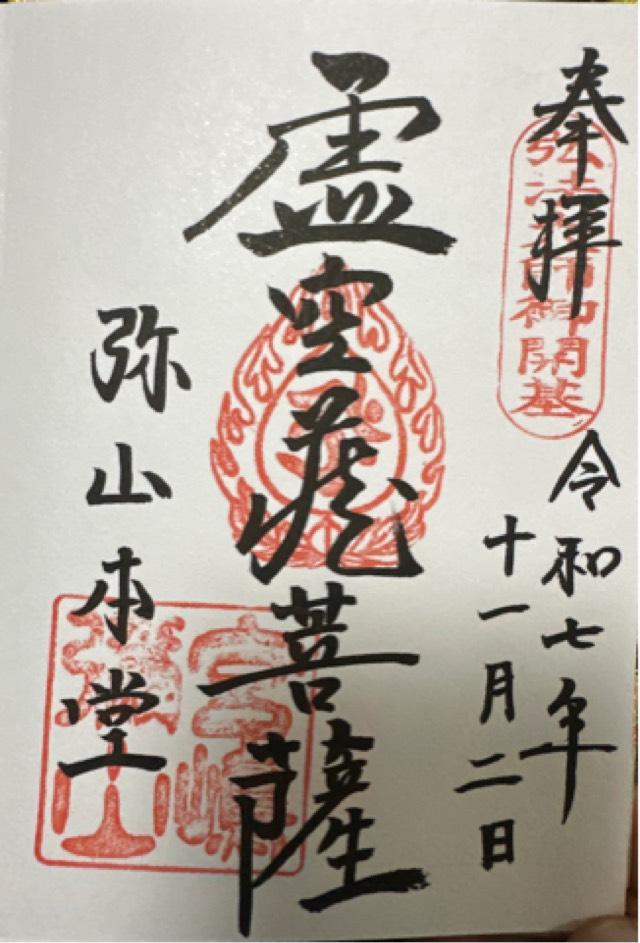 奉拝
弘法大師御開基
令和七年
十一月二日
虚空蔵菩薩
弥山本堂
宮嶋
彌山